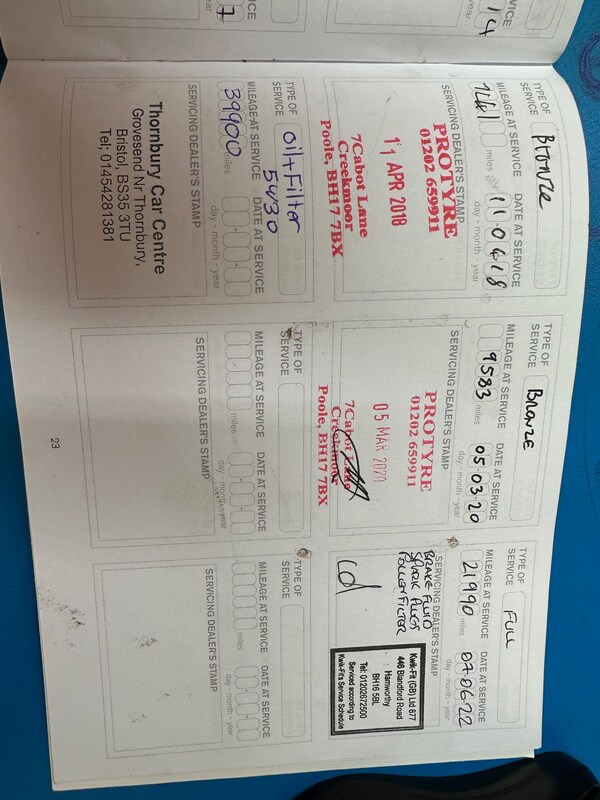 TYPE OF SERVICE
Bronze
MILEAGE AT SERVICE
DATE AT SERVICE
miles
11 04 18
day - month - year
SERVICING DEALER'S STAMP
PROTYRE
01202 659911
11 APR 2018
7Cabot Lane
Creekmoor
Poole, BH17 7BX
TYPE OF SERVICE
BRONZE
MILEAGE AT SERVICE
DATE AT SERVICE
9583 miles
05 03 20
day - month - year
SERVICING DEALER'S STAMP
PROTYRE
01202 659911
05 MAR 2020
7Cabot Lane
Creekmoor
Poole, BH17 7BX
TYPE OF SERVICE
FULL
MILEAGE AT SERVICE
DATE AT SERVICE
21990 miles
07 06 22
day - month - year
SERVICING DEALER'S STAMP
BRAKE FLUID
SPARK PLUGS
POLLEN FILTER
Kwik-Fit (GB) Ltd 877
446 Blandford Road
Hamworthy
BH16 5BL
Tel: 01202672500
Serviced according to
Kwik-Fit's Service Schedule
TYPE OF SERVICE
Oil + Filter
5W30
MILEAGE AT SERVICE
DATE AT SERVICE
39900 miles
day - month - year
SERVICING DEALER'S STAMP
Thornbury Car Centre
Grovesend Nr Thornbury,
Bristol, BS35 3TU
Tel: 01454281381
TYPE OF SERVICE
MILEAGE AT SERVICE
DATE AT SERVICE
miles
day - month - year
SERVICING DEALER'S STAMP
TYPE OF SERVICE
MILEAGE AT SERVICE
DATE AT SERVICE
miles
day - month - year
SERVICING DEALER'S STAMP
23